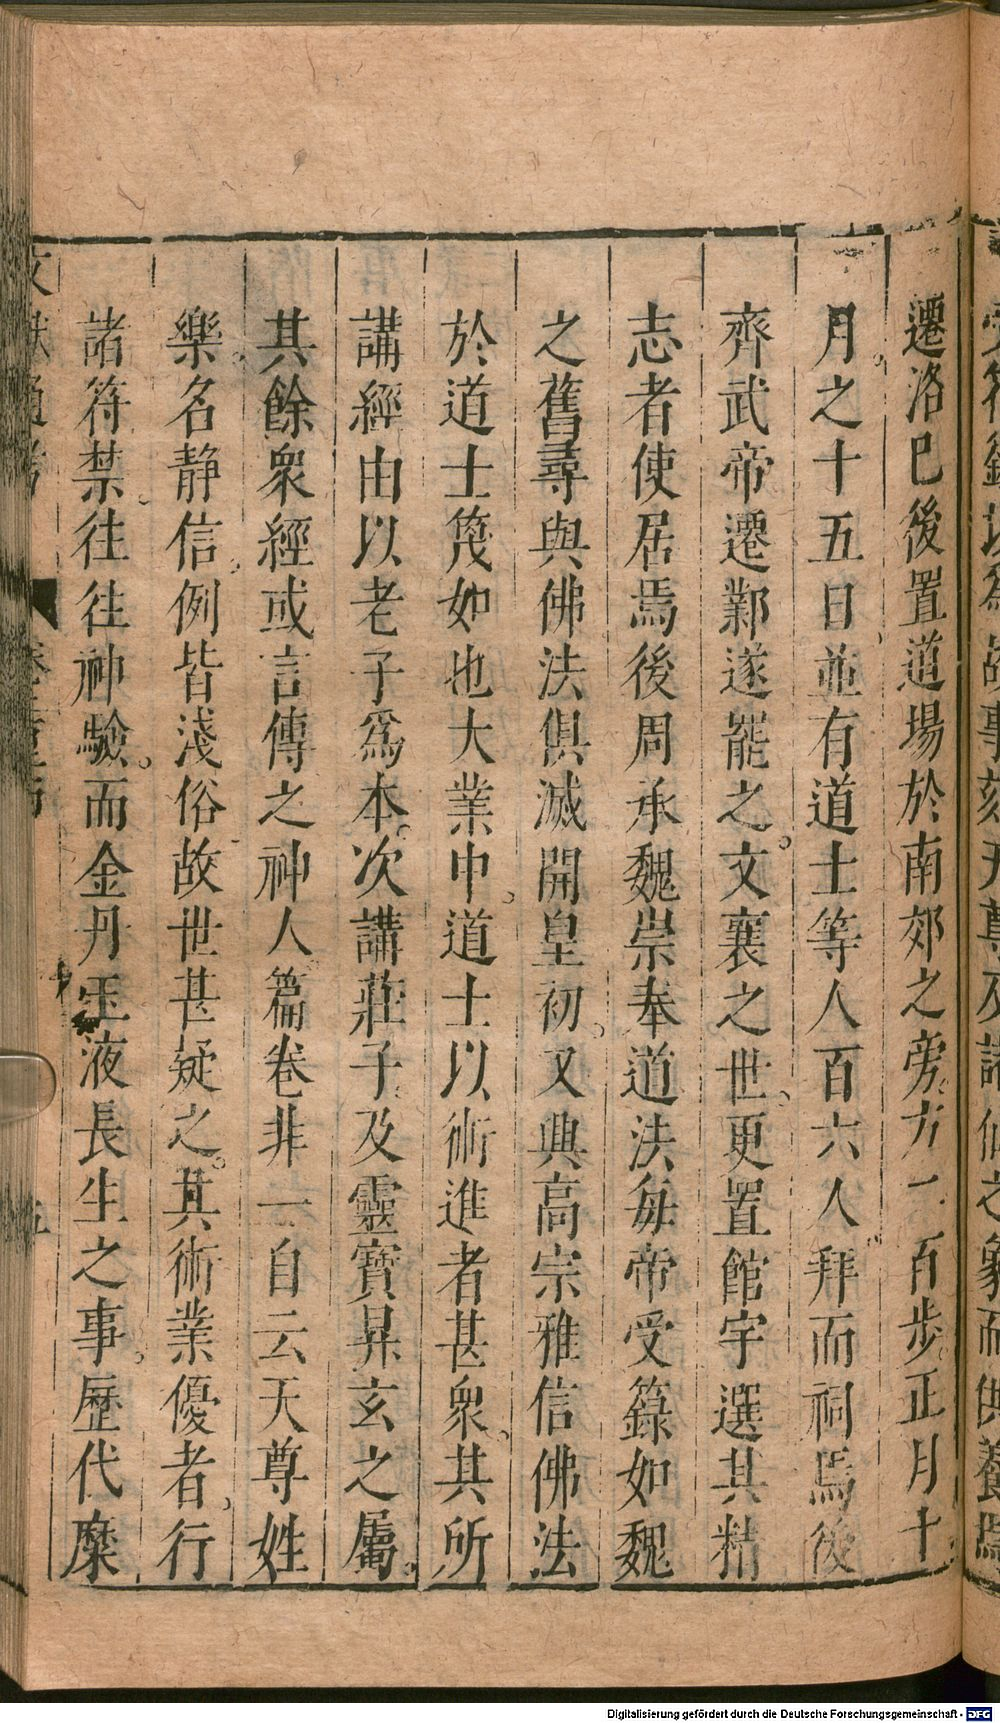 遷洛已後置道場於南郊之旁方一百步正月十
月之十五日並有道士等人百六人拜而祠焉後
齊武帝遷鄴遂罷之文襄之世更置館宇選其精
志者使居焉後周承魏崇奉道法每帝受籙如魏
之舊尋與佛法俱滅開皇初又興高宗雅信佛法
於道士篾如也大業中道士以術進者甚衆其所
講經由以老子爲本次講莊子及靈寶昇玄之屬
其餘衆經或言傳之神人篇卷非一自云天尊姓
樂名静信例皆淺俗故世甚疑之其術業優者行
諸符禁往往神驗而金丹玉液長生之事歷代糜
Digitalisierung gefördert durch die Deutsche Forschungsgemeinschaft - DFG